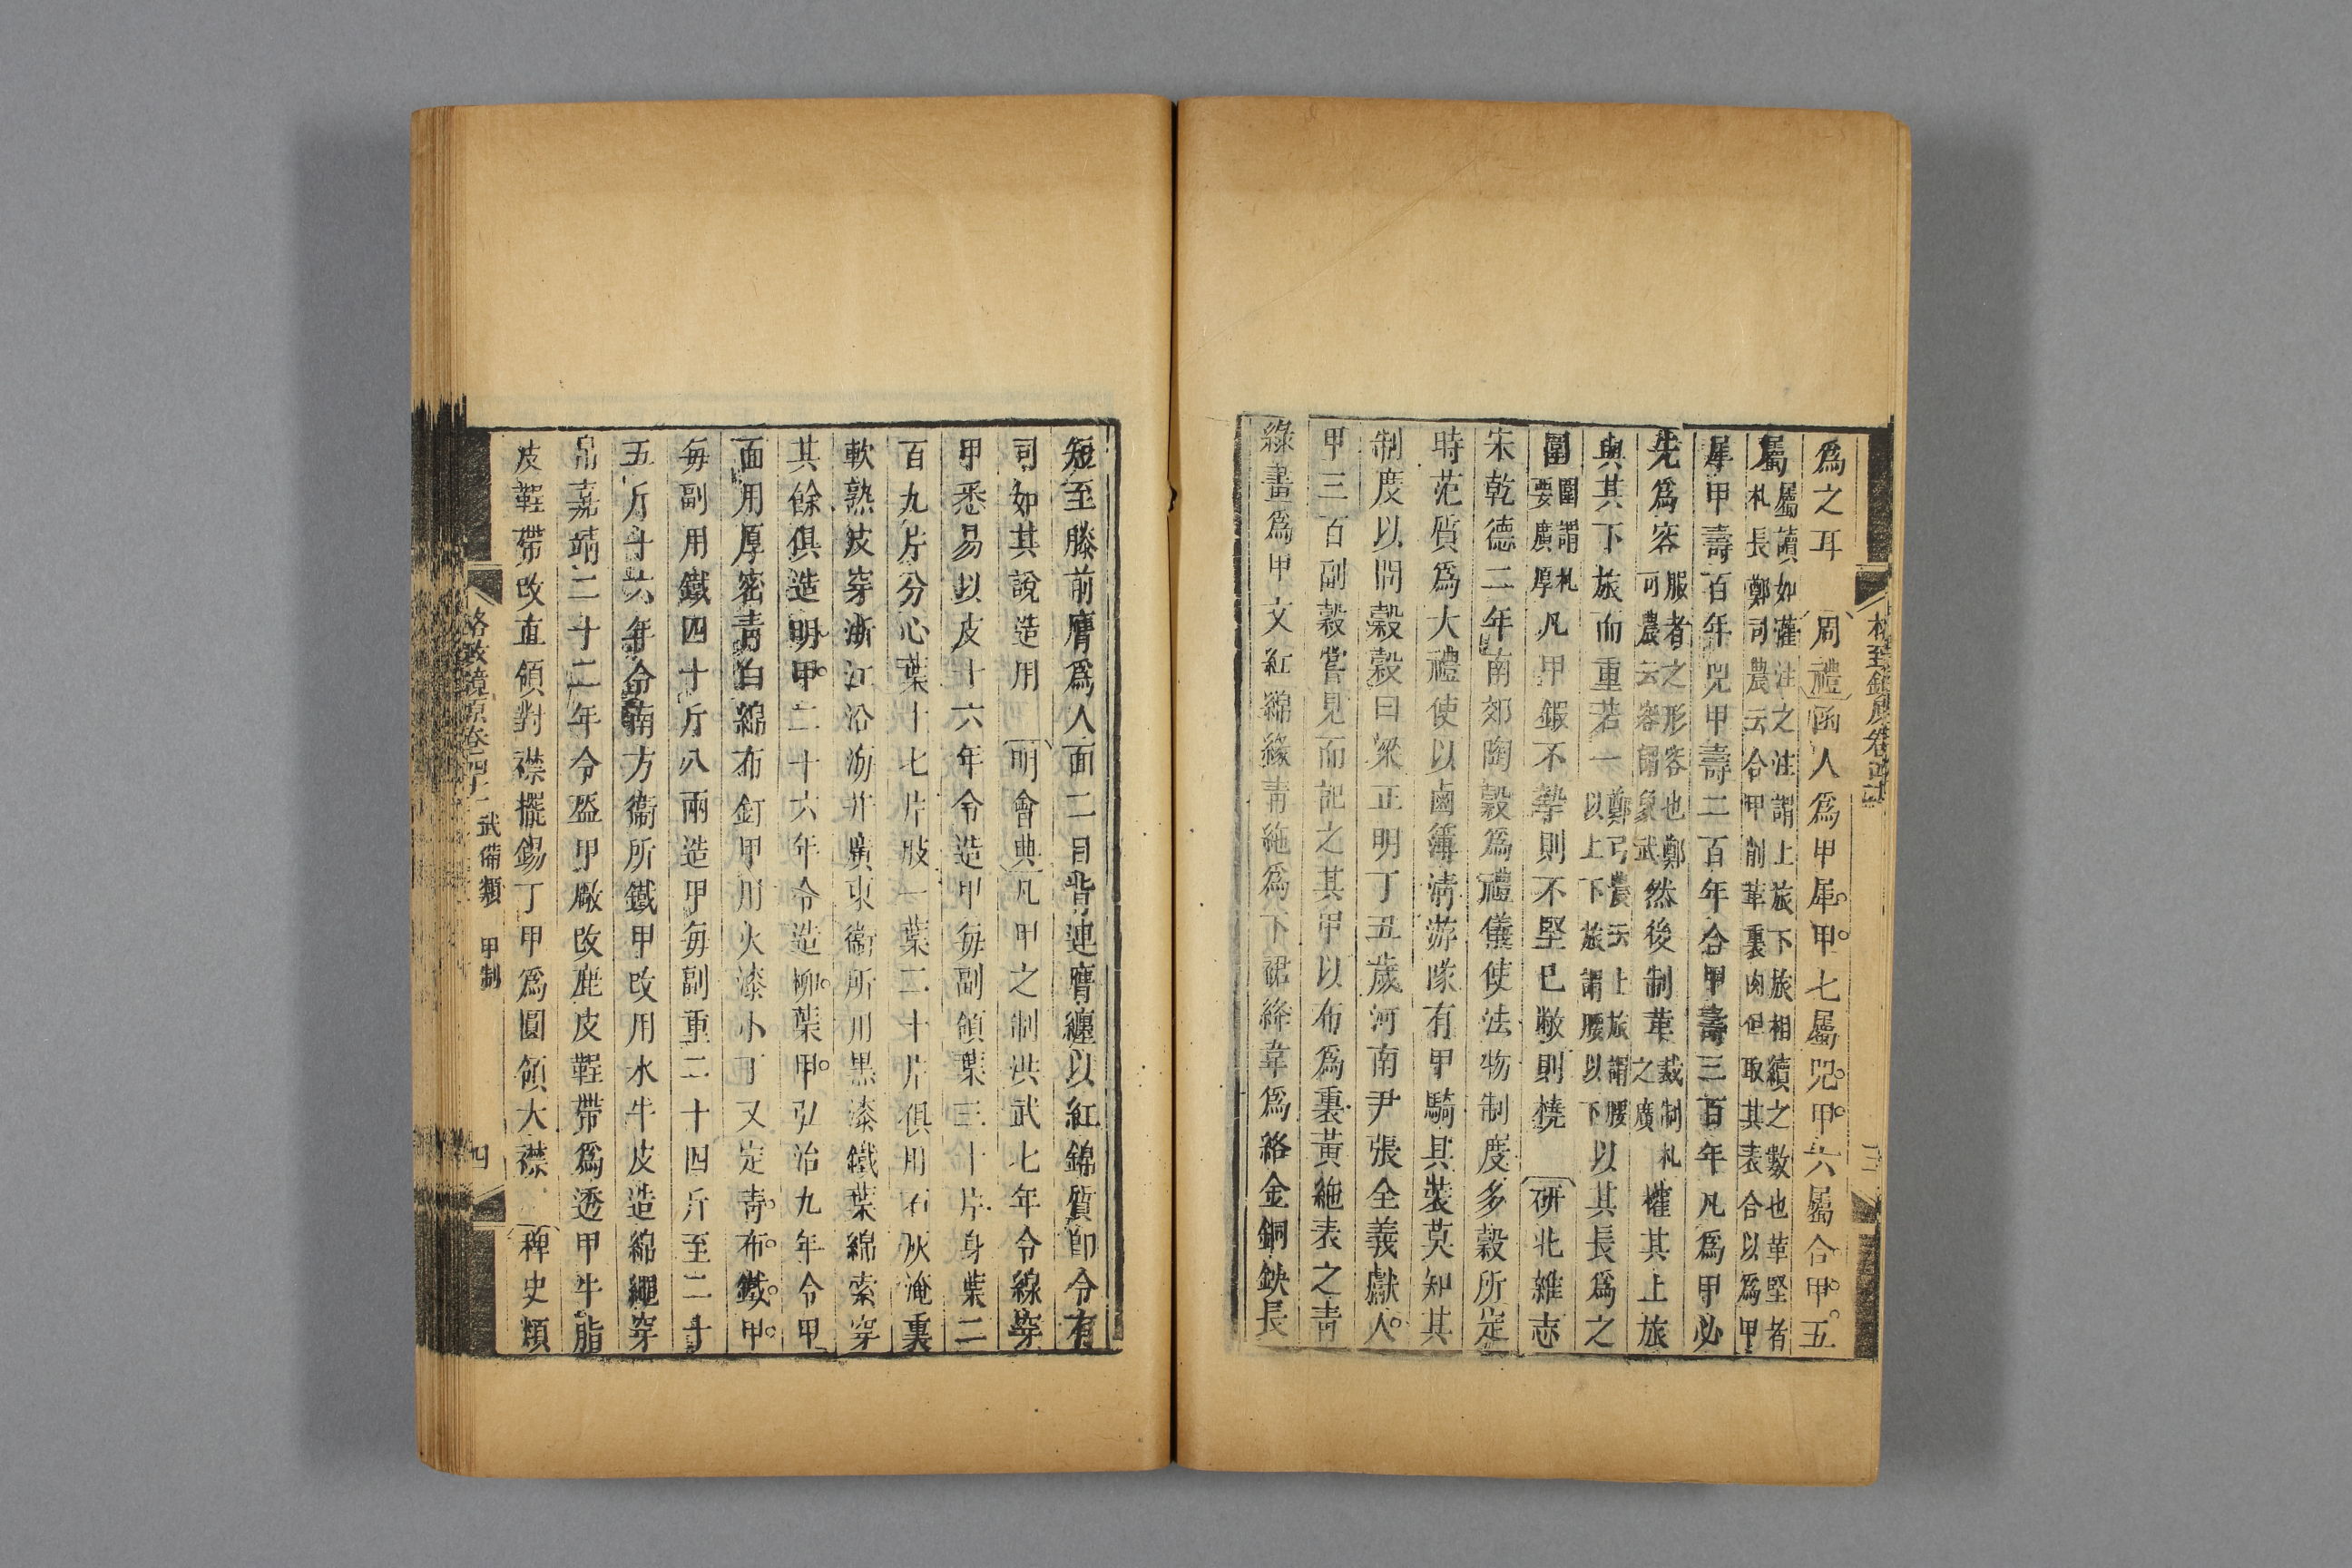 爲之耳　周禮函人爲甲犀甲七屬兕甲六屬合甲五
屬屬讀如灌注之注謂上旅下旅相續之數也革堅者札長鄭司農云合甲削革裏肉但取其表合以爲甲
犀甲壽百年兕甲壽二百年合甲壽三百年凡爲甲必
先爲容服者之形容也鄭司農云容謂象武然後制革裁制札之廣權其上旅
與其下旅而重若一鄭司農云上旅謂腰以上下旅謂腰以下以其長爲之
圍圍謂札要廣厚凡甲鍜不摯則不堅已敝則橈　研北雜志
宋乾德二年南郊陶穀爲禮儀使法物制度多穀所定
時范質爲大禮使以鹵簿淸游隊有甲騎其裝莫知其
制度以問穀穀曰梁正明丁丑歲河南尹張全義獻人
甲三百副穀嘗見而記之其甲以布爲裏黃絁表之靑
綠畫爲甲文紅錦緣靑絁爲下裙絳韋爲絡金銅鈌長
短至膝前膺爲人面二目背連膺纏以紅錦質卽令有
司如其說造用　明會典凡甲之制洪武七年令線穿
甲悉易以皮十六年令造甲毎副領葉三十片身葉二
百九片分心葉十七片肢一葉二十片俱用石灰淹裏
軟熟皮穿浙江沿海并廣東衞所用黑漆鐵葉綿索穿
其餘俱造明甲二十六年令造柳葉甲弘治九年令甲
面用厚密靑白綿布釘甲用火漆小丁又定靑布鐵甲
毎副用鐵四十斤八兩造甲毎副重二十四斤至二十
五斤十六年令南方衞所鐵甲改用水牛皮造綿繩穿
吊嘉靖二十二年令盔甲厰改鹿皮鞓帶爲透甲牛脂
皮鞓帶改直領對襟擺錫丁甲爲圓領大襟　稗史類
格致鏡原卷四十二　武備類　甲制　四